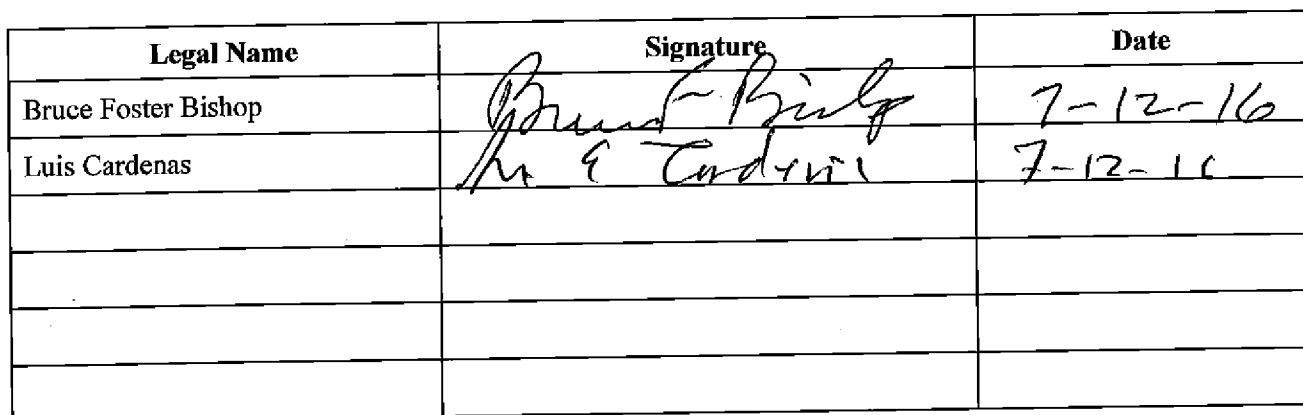 Legal Name Signature Date
Bruce Foster Bishop Bruce F Bishop 7-12-16
Luis Cardenas E Cardenas 7-12-16